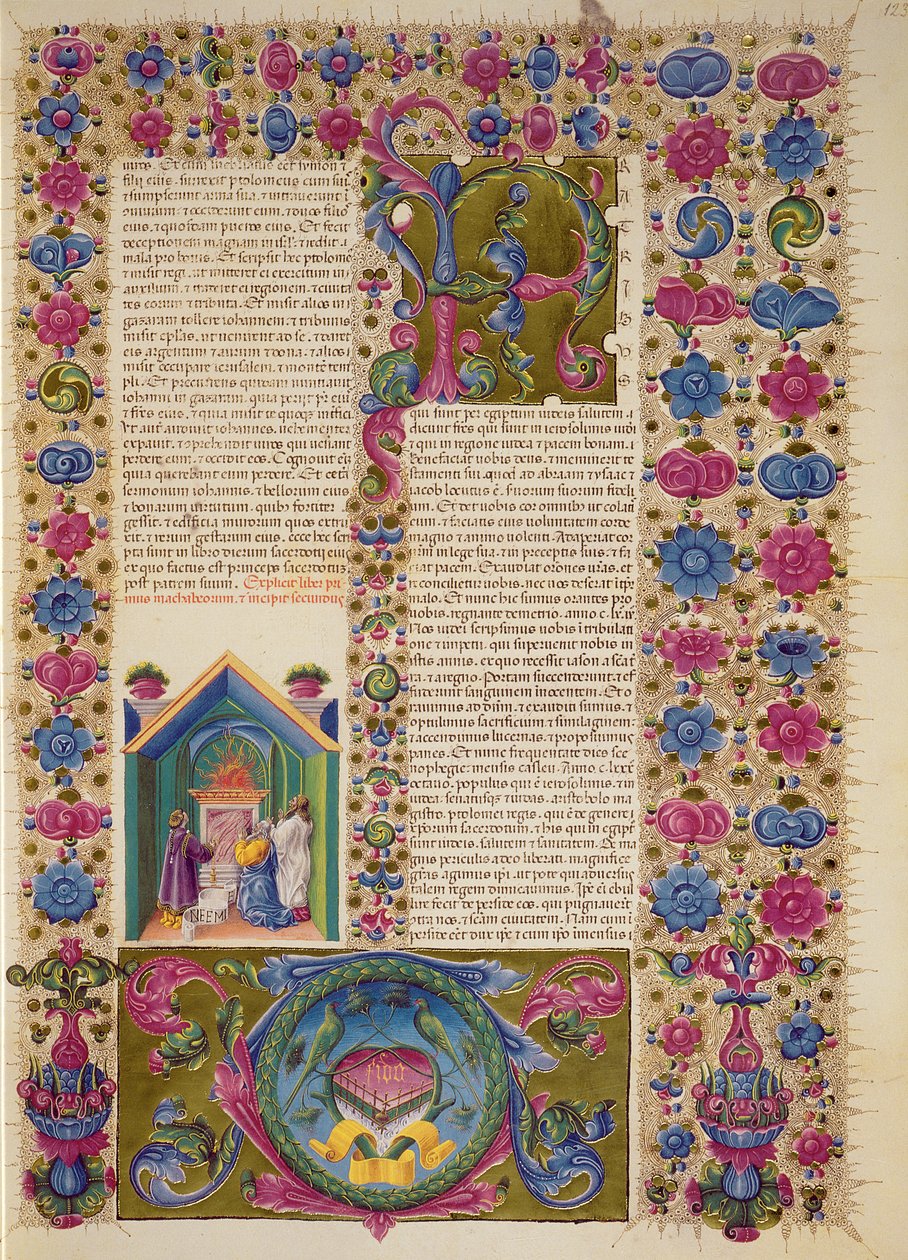 123
filij eius. surrexit ptolomeus cum suis
sumpserunt arma sua, & intraverunt i
conuiuium. & occiderunt eum. & duos filios
eius. & quosdam pueros eius. Et fecit
deceptionem magnam in isrl. & reddit.
mala pro bonis. Et scripsit hec ptolome
& misit regi. ut mitteret ei exercitum in
auxilium. & traderet ei regionem. & ciuita
tes eorum & tributa. Et misit alios in
gazaram tollere iohannem. & tribunis
misit eplas. ut uenirent ad se. & daret
eis argentum & aurum & dona. & alios
misit occupare ierusalem. & montem tem
pli. Et precurrens quidam nuntiauit
iohanni in gazara. quia perijt pr ei
& frēs eius. & quia misit te quoqz interfici
Vt aut audiuit iohannes. uehementer
expauit. & comprehendit uiros qui uenerant
perdere eum. & occidit eos. Cognouit eni
quia querebant eum perdere. Et cetera
sermonum iohannis. & bellorum eius
& bonarum uirtutum. quibz fortiter
gessit. & edificia murorum quos extru
xit. & rerum gestarum eius. ecce hec scri
pta sunt in libro dierum sacerdotij eius
ex quo factus est princeps sacerdotuz
post patrem suum. Explicit liber pri
mus machabeorum. & incipit secundus
NEEMI
F R A T R I B V S
qui sunt per egiptum iudeis salutem.
dicunt frēs qui sunt in ierosolimis iudei
& qui in regione iudea & pacem bonam.
benefaciat uobis deus. & meminerit te
stamenti sui. quod ad abraam & ysaac &
iacob locutus ē. seruorum suorum fideliū
Et det uobis cor omnibz ut colatis
eum. & faciatis eius uoluntatem corde
magno & animo uolenti. Adaperiat cor
urm in lege sua. & in preceptis suis. & fa
ciat pacem. Exaudiat orones uras. et
reconcilietur uobis. nec uos deserat in tpr
malo. Et nunc hic sumus orantes pro
uobis. regnante demetrio. anno c. lx. ix
Nos iudei scripsimus uobis in tribulati
one & impetu. qui superuenit nobis in
istis annis. ex quo recessit iason a scata
tra. & a regno. Portam succenderunt. & ef
fuderunt sanguinem inocentem. Et o
rauimus ad dnm. & exauditi sumus. &
optulimus sacrificium & similaginem
& accendimus lucernas. & proposuimus
panes. Et nunc frequentate dies sce
nophegie mensis casleu. Anno c. lxxx
octauo. populus qui ē ierosolimis. & in
iudea. senatusqz & iudas. aristobolo ma
gistro. ptolomei regis. qui ē de genere
xporum sacerdotum. & his qui in egip
to iudeis. salutem & sanitatem. De ma
gnis periculis a deo liberati. magnifice
gras agimus ipi. ut pote qui aduersus
talem regem dimicauimus. Ipse eni ebul
lire fecit de perside eos. qui pugnauerūt
contra nos. & scam ciuitatem. Nam cum i
perside eet dux ipe. & cum ipo imensus